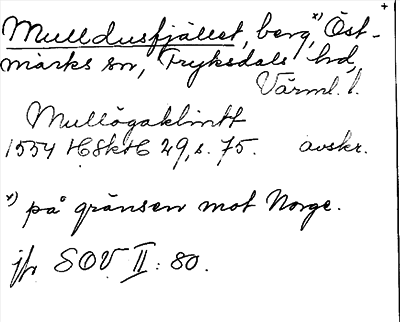 Mulldusfjället, berg, x) Öst-
marks sn, Fryksdals hd,
Värml. l.
Mullögaklintt
1554 HSkH 29, s. 75. avskr.
x) på gränsen mot Norge.
jfr SOV II: 80.